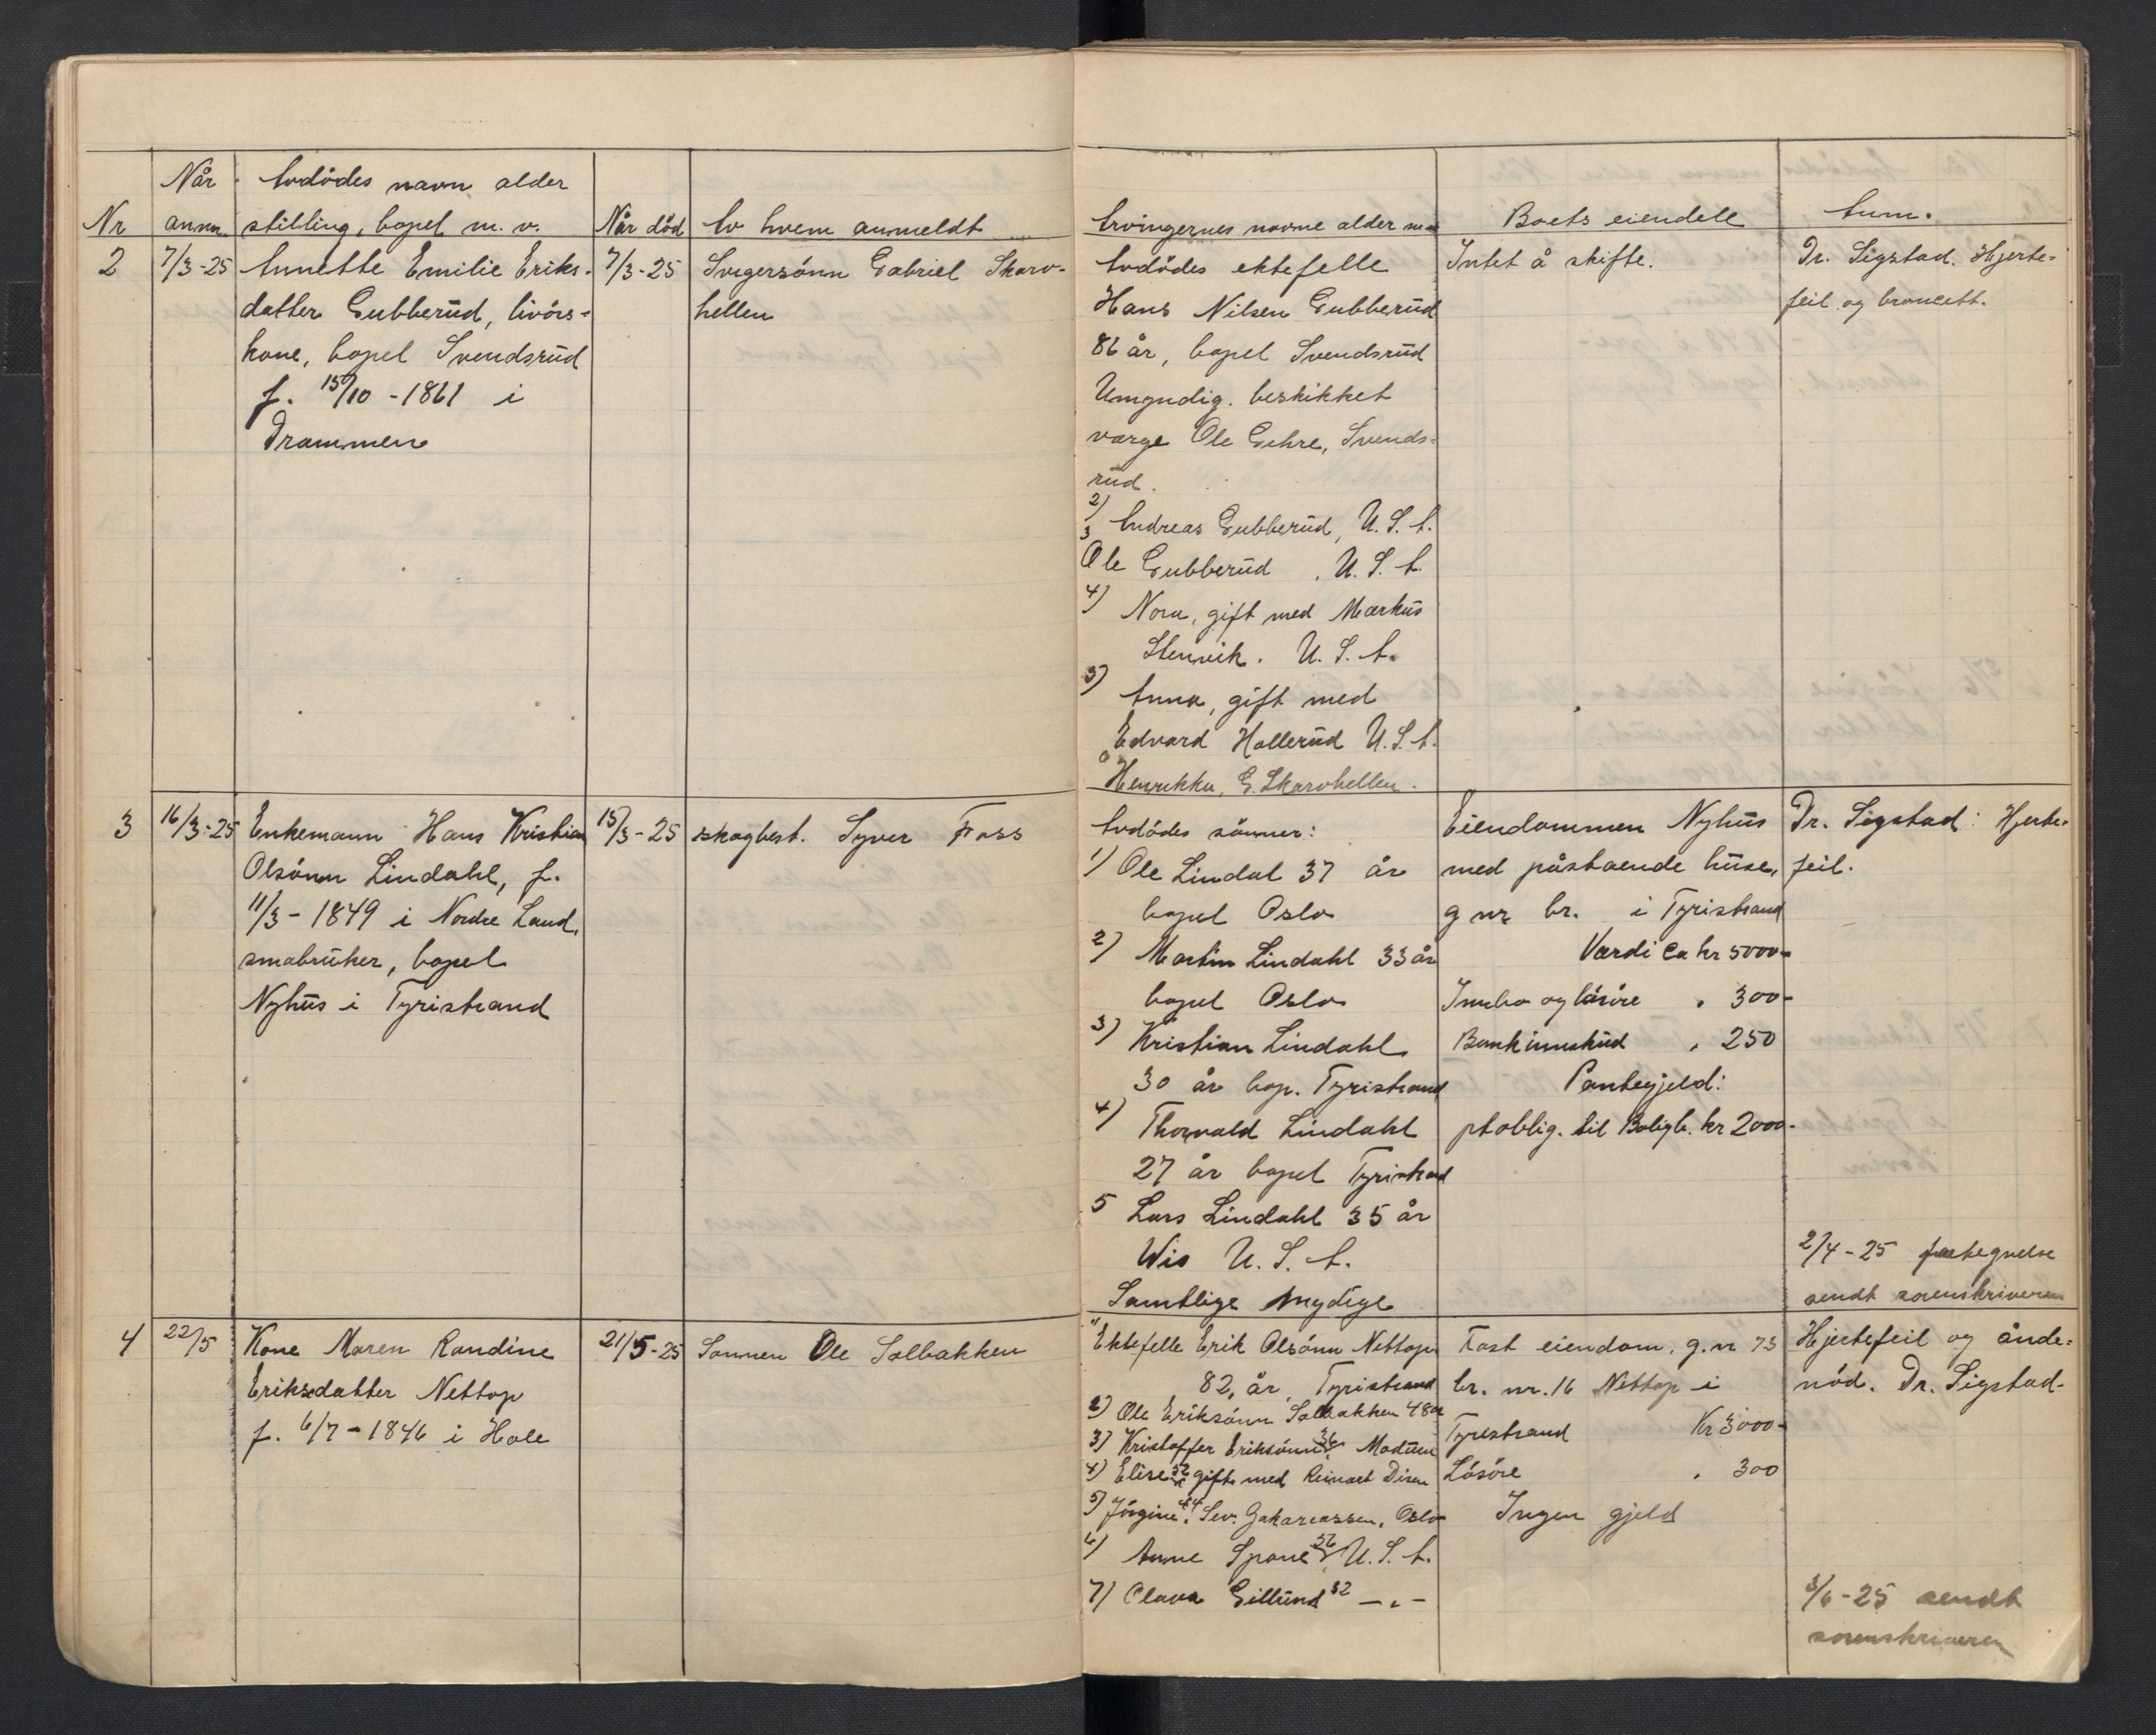 Når Avdødes navn alder
Nr anm. stilling, bopel m. v. Når död Av hvem anmeldt
2 7/3-25 Annette Emilie Eriks- 7/3-25 Svigersönn Gabriel Skarv-
datter Gubberud, livörs- hellen
kone, bopel Svendsrud
f. 15/10 - 1861 i
Drammen
3 16/3-25 Enkemann Hans Kristian 15/3-25 skogbest. Syver Foss
Olsönn Lindahl, f.
11/3 - 1849 i Nordre Land,
smabruker, bopel
Nyhus i Tyristrand
4 22/5 Kone Maren Randine 21/5-25 Sønnen Ole Solbakken
Eriksdatter Nettop
f. 6/7 - 1846 i Hole
Arvingernes navne alder m. Boets eiendele Anm.
Avdödes ektefelle Intet å skifte. Dr. Sigstad. Hjerte-
Hans Nilsen Gubberud feil og broncitt.
86 år, bopel Svendsrud
Umyndig. beskikket
værge Ole Gehre, Svends-
rud.
2) Andreas Gubberud, U.S.A.
3 Ole Gubberud, U.S.A.
4) Nora, gift med Markus
Stenvik. U.S.A.
5) Anna, gift med
Edvard Hollerud U.S.A.
6 Henrikka, G. Skarvhellen.
Avdödes sönner: Eiendommen Nyhus Dr. Sigstad: Hjerte-
1) Ole Lindal 37 år med påstaende huse, feil.
bopel Oslo g nr br. i Tyristrand
2) Martin Lindahl 33 år Værdi ca kr 5000-
bopel Oslo Innbo og lösöre " 300-
3) Kristian Lindahl Bankinnskud " 250
30 år bop. Tyristrand Pantegjeld:
4) Thorvald Lindahl ptoblig. til Boligb. kr 2000-
27 år bopel Tyristrand
5 Lars Lindahl 35 år
Wis U.S.A. 2/4-25 fortegnelse
Samtlige mydige sendt sorenskriveren
1) Ektefelle Erik Olsönn Nettop Fast eiendom, g.nr 73 Hjertefeil og ånde-
82, år, Tyristrand br. nr. 16 Nettop i nöd. Dr. Sigstad-
2) Ole Eriksönn Solbakken 48 år Tyristrand Kr 3000-
3) Kristoffer Eriksönn 36, Modum
4) Elise 52 gift med Reinart Disen Lösöre " 300
5) Jörgine 44, Sev. Zakariassen, Oslo Ingen gjeld
6) Anne Spone 56, U.S.A.
7) Olava Gillund 52 -"-
3/6-25 sendt
sorenskriveren